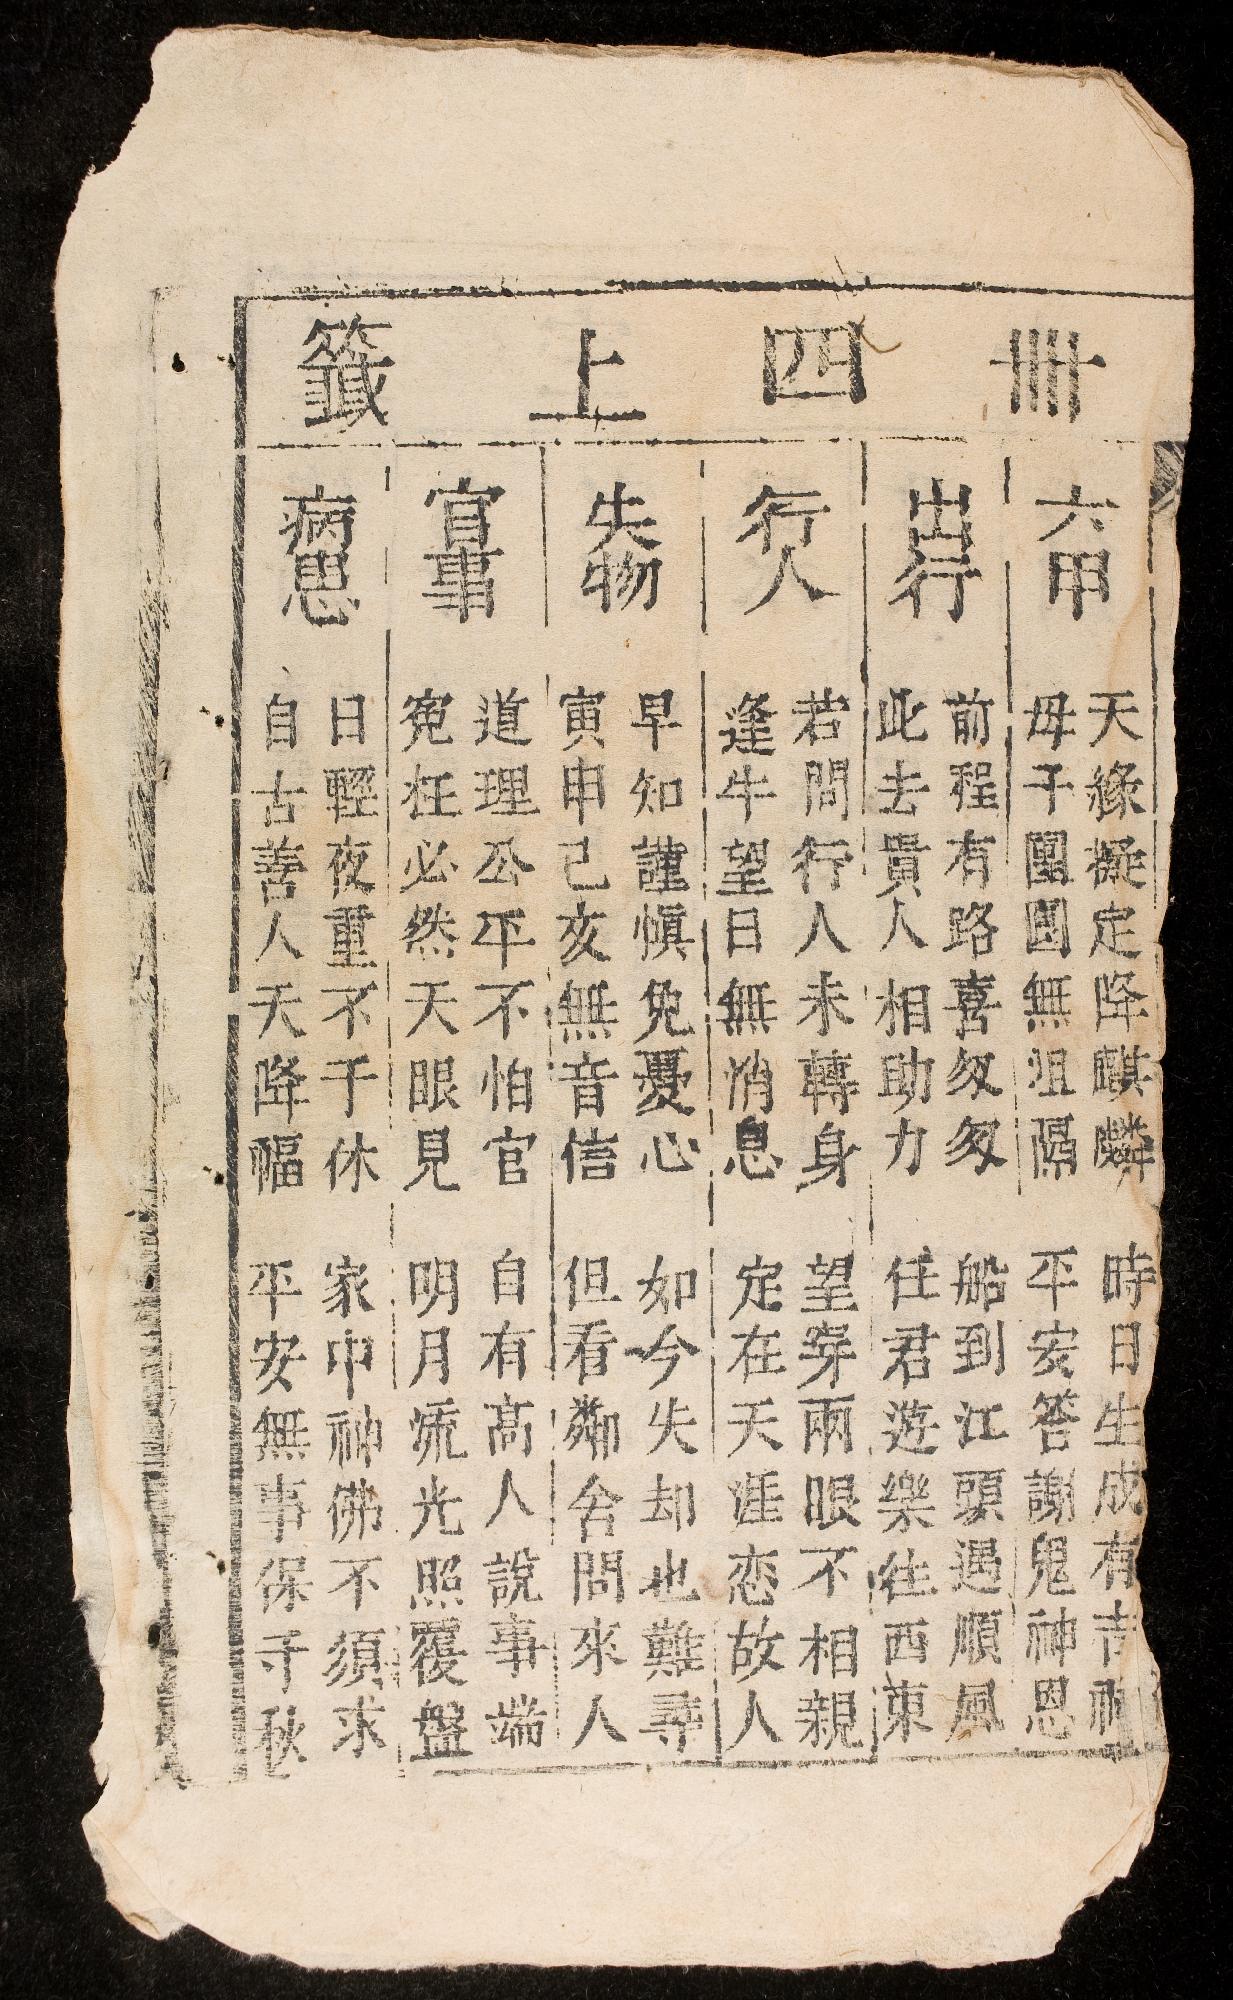 卌四上籤
六甲
天緣擬定降麒麟
時日生成有
母子團圓無沮隔
平安答謝鬼神恩
出行
前程有路喜匆匆
船到江頭遇順風
此去貴人相助力
任君遊樂往西東
行人
若問行人未轉身
望穿兩眼不相親
逢牛望日無消息
定在天涯恋故人
失物
早知謹慎免憂心
如今失却也難尋
寅申己亥無音信
但看鄰舍問來人
官事
道理公平不怕官
自有高人說事端
寃枉必然天眼見
明月流光照覆盤
病患
日輕夜重不干休
家中神佛不須求
自古善人天降福
平安無事保千秋